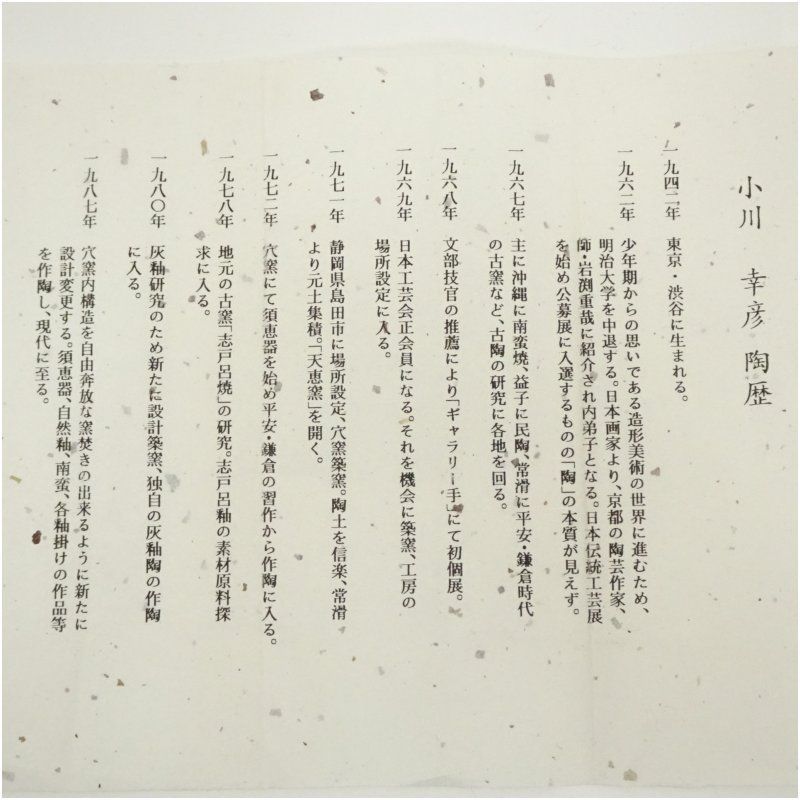 小川 幸彦 陶歴
一九四二年 東京・渋谷に生まれる。
一九六二年 少年期からの思いである造形美術の世界に進むため、
明治大学を中退する。日本画家より、京都の陶芸作家、
師・岩渕重哉に紹介され内弟子となる。日本伝統工芸展
を始め公募展に入選するものの「陶」の本質が見えず。
一九六七年 主に沖縄に南蛮焼、益子に民陶、常滑に平安・鎌倉時代
の古窯など、古陶の研究に各地を回る。
一九六八年 文部技官の推薦により「ギャラリー手」にて初個展。
一九六九年 日本工芸会正会員になる。それを機会に築窯、工房の
場所設定に入る。
一九七一年 静岡県島田市に場所設定、穴窯築窯。陶土を信楽、常滑
より元土集積。「天恵窯」を開く。
一九七二年 穴窯にて須恵器を始め平安・鎌倉の習作から作陶に入る。
一九七八年 地元の古窯「志戸呂焼」の研究。志戸呂釉の素材原料探
求に入る。
一九八〇年 灰釉研究のため新たに設計築窯、独自の灰釉陶の作陶
に入る。
一九八七年 穴窯内構造を自由奔放な窯焚きの出来るように新たに
設計変更する。須恵器、自然釉、南蛮、各釉掛けの作品等
を作陶し、現代に至る。